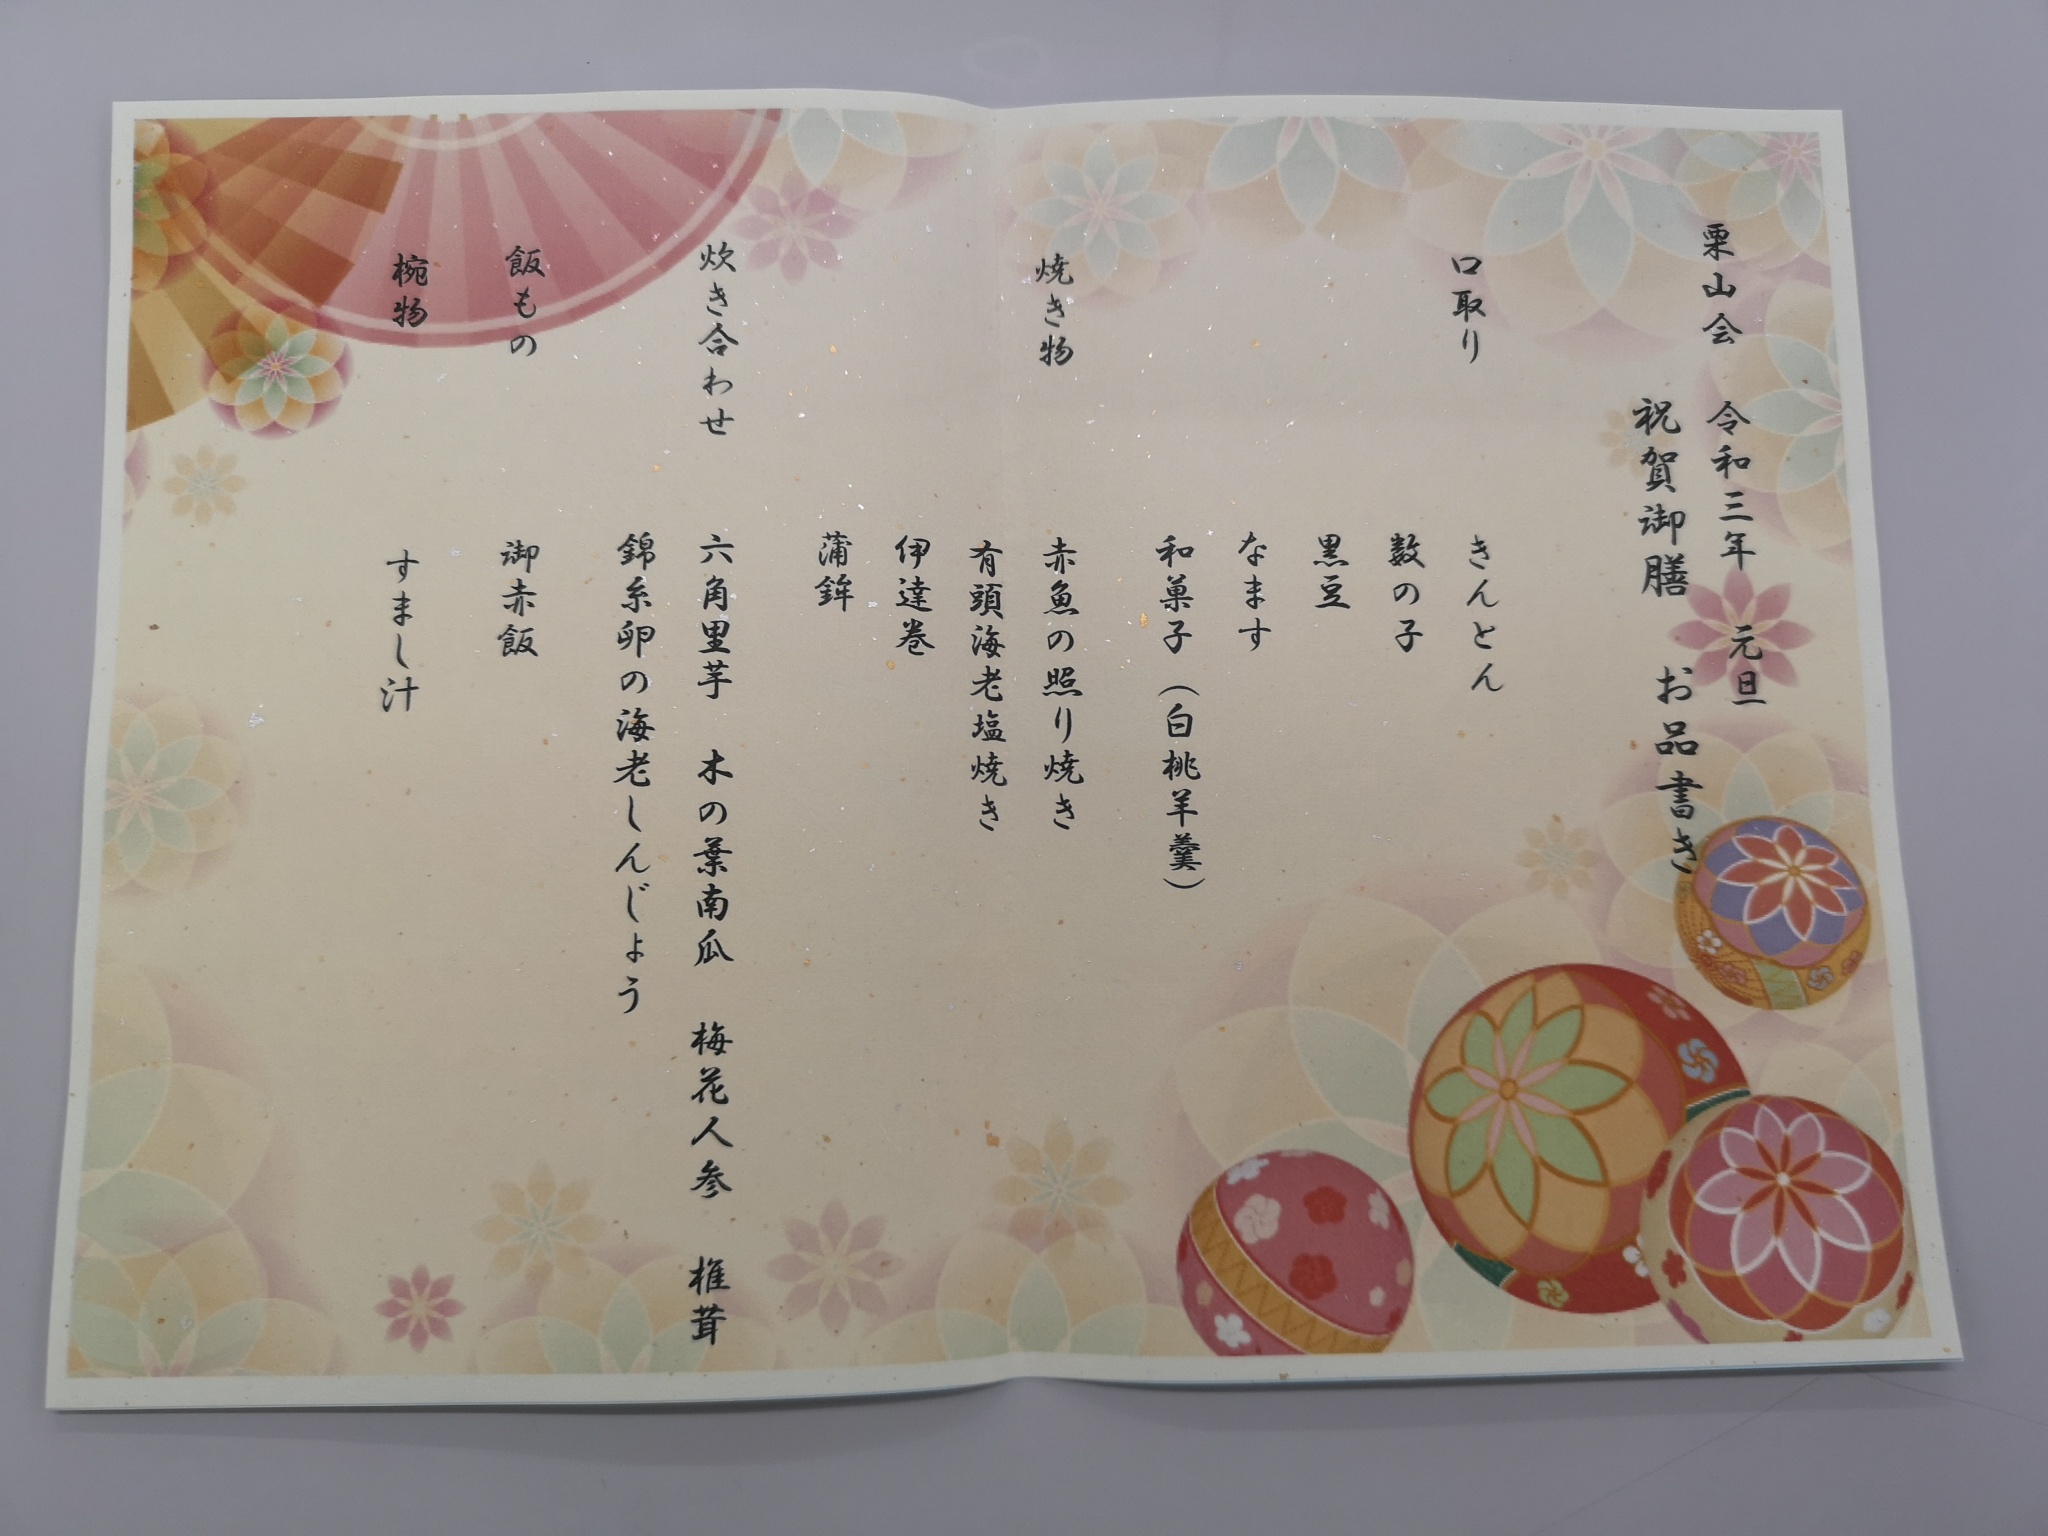 栗山会　令和三年　元旦
祝賀御膳　お品書き
口取り
きんとん
数の子
黒豆
なます
和菓子（白桃羊羹）
焼き物
赤魚の照り焼き
有頭海老塩焼き
伊達巻
蒲鉾
炊き合わせ
六角里芋　木の葉南瓜　梅花人参　椎茸
錦糸卵の海老しんじょう
飯もの
御赤飯
椀物
すまし汁